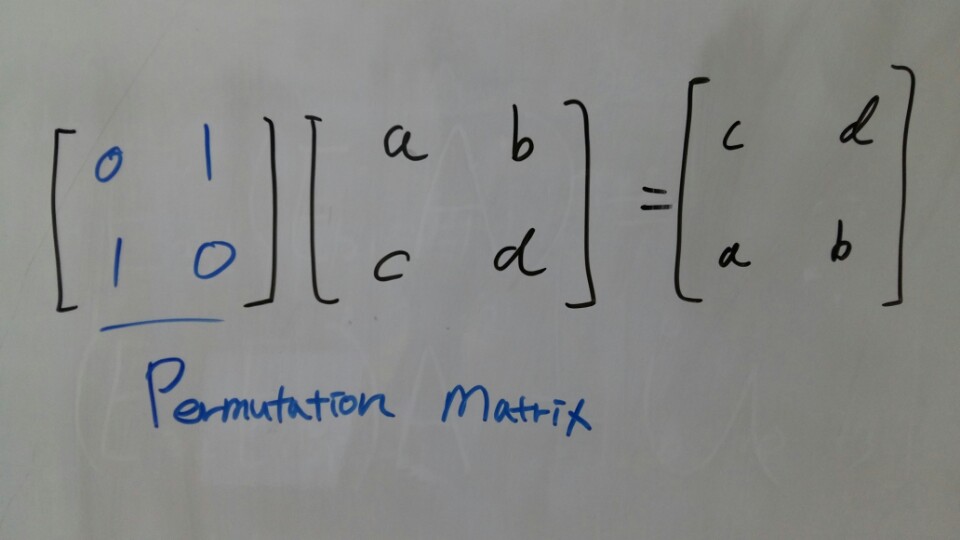 [0 1] [a b] = [c d]
[1 0] [c d] [a b]
Permutation Matrix